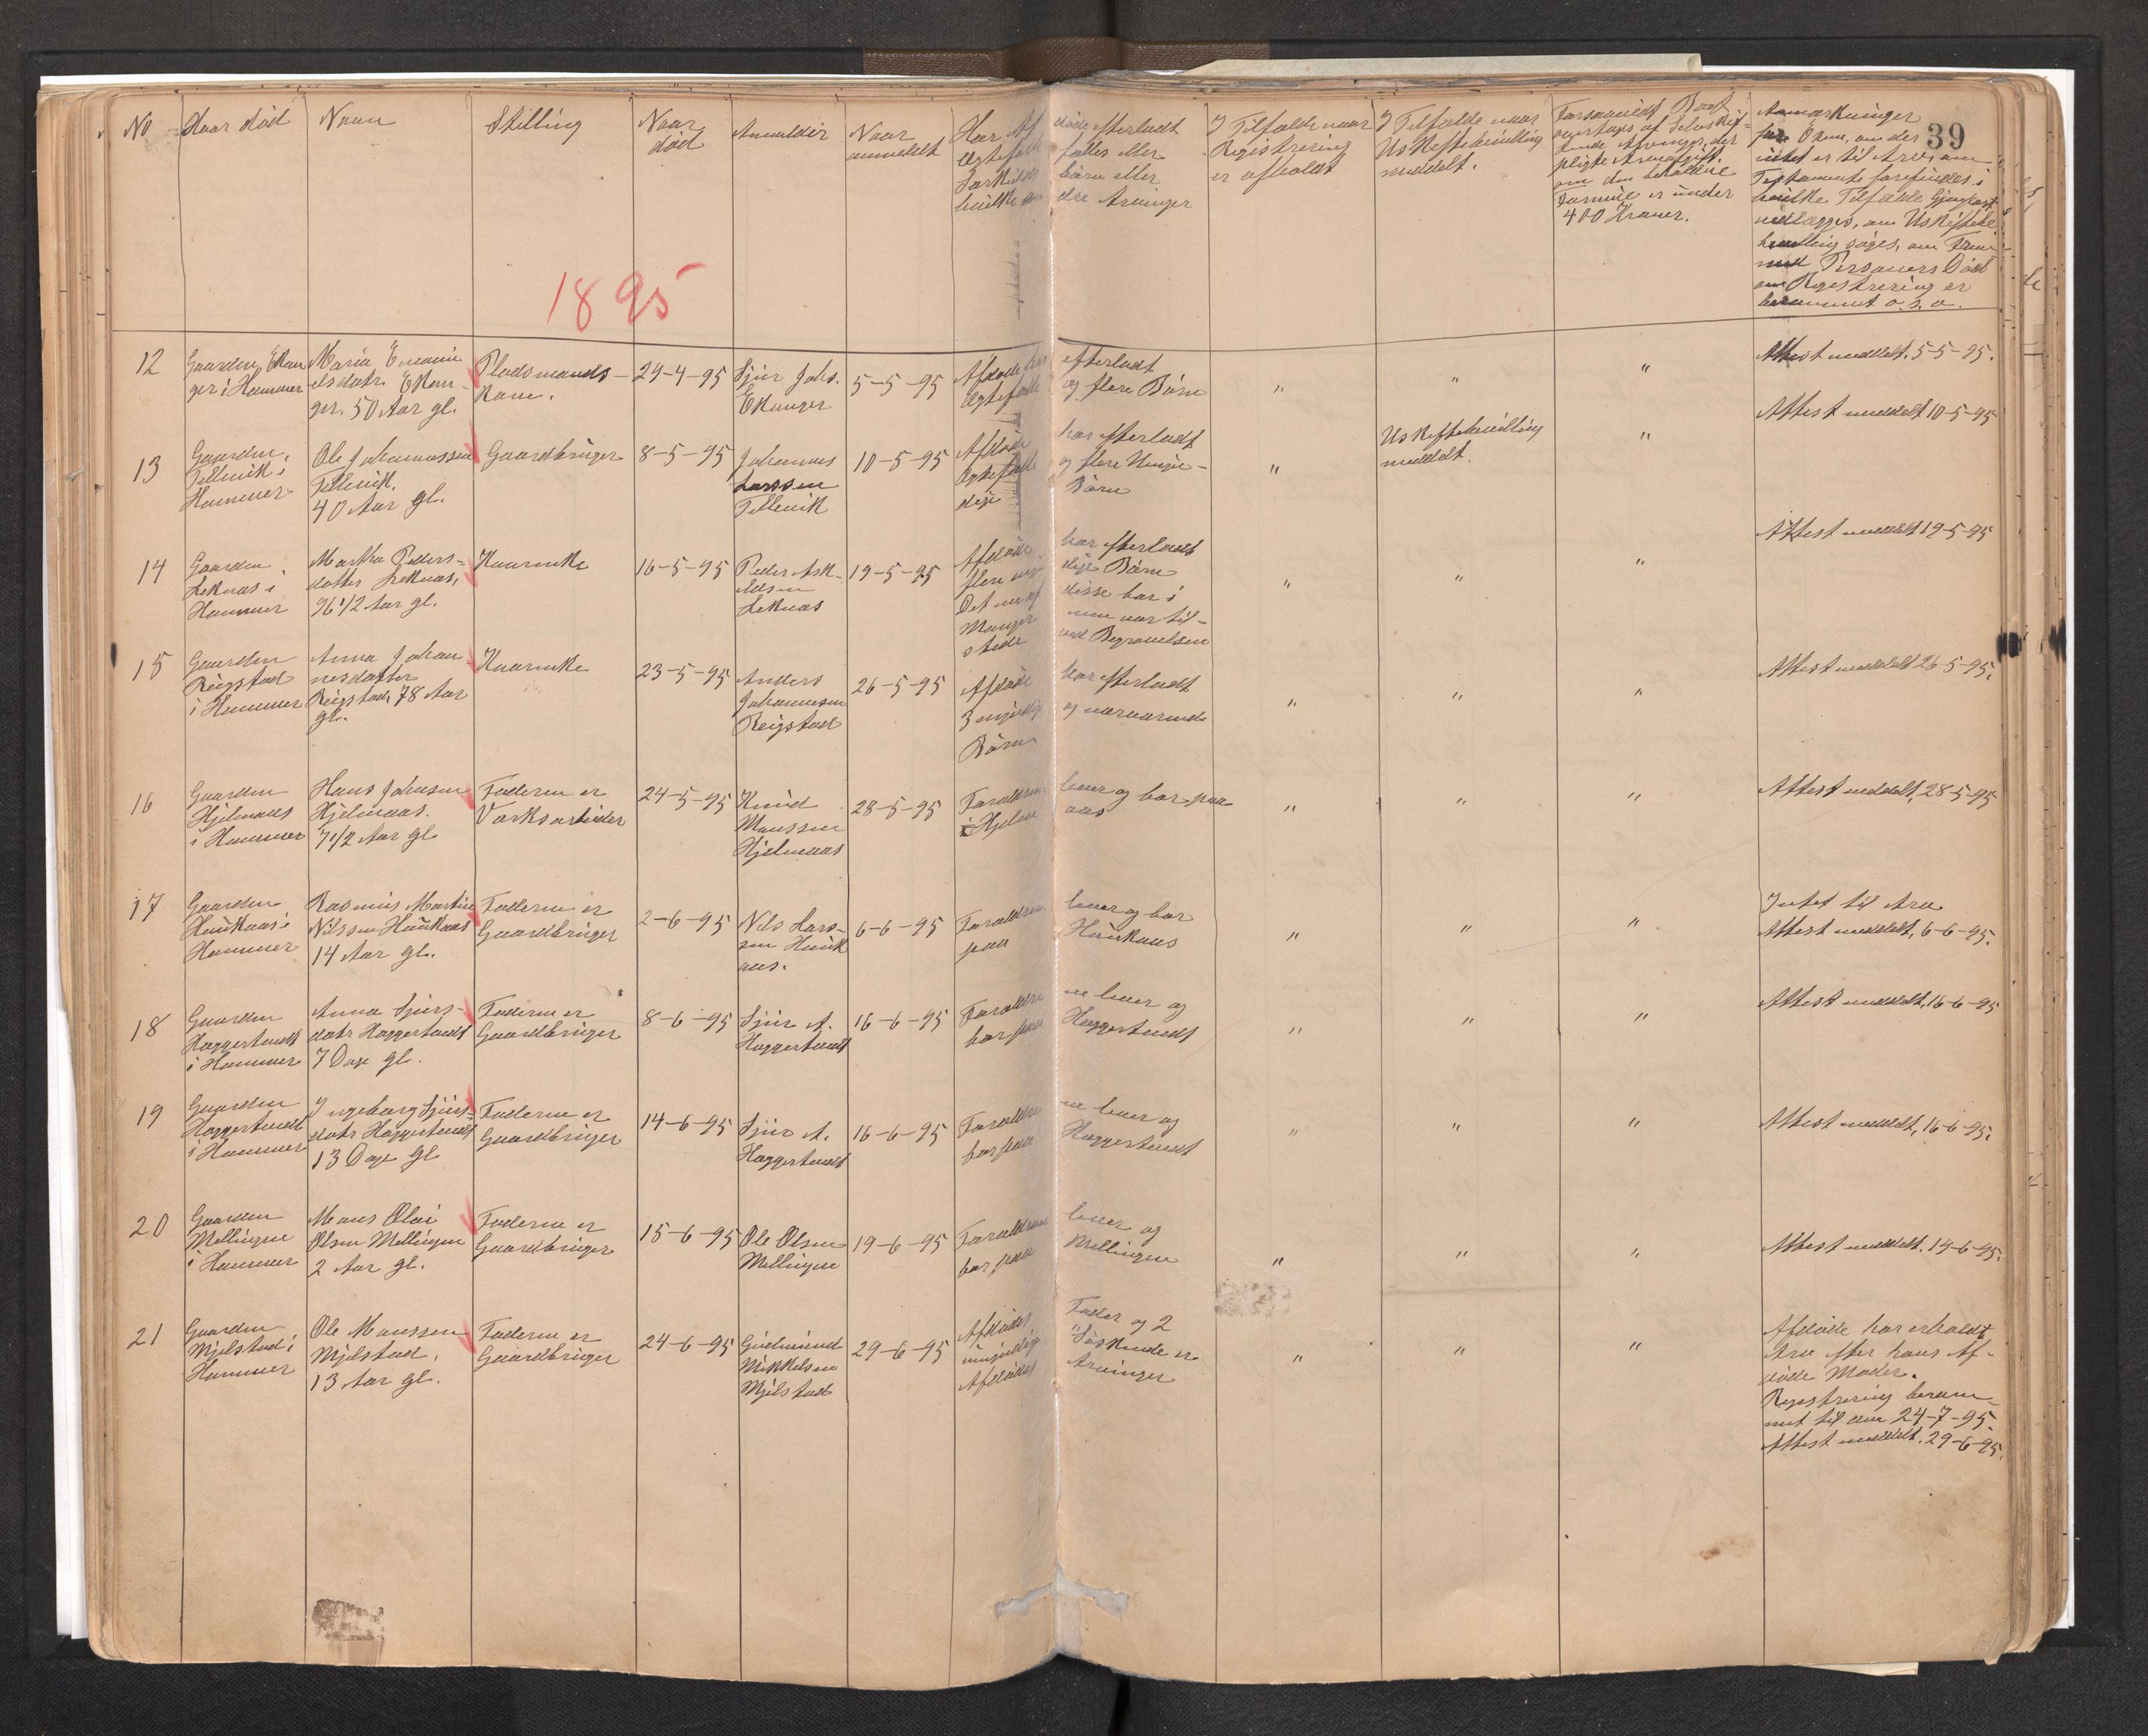 39
No
Hvor død
Navn
Stilling
Naar
død
Anmelder
Naar
anmeldt
Har Af døde efterladt
Ægtefælle fælles eller
Særkilds børn eller
hvilke an dre Arvinger
I Tilfælde naar
Registrering
er afholdt
I Tilfælde naar
Uskiftebevilling
meddelt.
Forsaavidt Boet
overtages af Selvskif-
tende Arvinger, der
pligte Arveafgift.
om den beholdne
Formue er under
400 Kroner.
Anmærkninger
for Exem, om der
intet er til Arv, om
Testamente forefindes i
hvilke Tilfælde Gjenpart
vedlægges, om Uskiftebe
bevilling søges, om Frem-
med Personers Død
om Registrering er
berammet o. s. v.
1895
12
Gaarden Ekan
ger i Hammer
Maria Emani
elsdatr. Ekan-
ger. 50 Aar gl.
Pladsmands-
kone.
29-4-95
Sjur Johs.
Ekanger
5-5-95
Afdøde har efterladt
Ægtefælle og flere Børn
"
"
"
Attest meddelt. 5-5-95.
13
Gaarden
Tellevik i
Hammer
Ole Johannessen
Tellevik.
40 Aar gl.
Gaardbruger
8-5-95
Johannes
Larssen
Tellevik
10-5-95
Afdøde har efterladt
Ægtefælle og flere Umyn-
dige Børn
"
Uskiftebevilling
meddelt.
"
Attest meddelt 10-5-95
14
Gaarden
Leknæs i
Hammer
Martha Peders-
datter Leknæs,
96 1/2 Aar gl.
Kaarenke
16-5-95
Peder Ask-
eldsen
Leknæs
19-5-95
Afdøde har efterladt
flere myn dige Børn
Det ene af disse bor i
Manger men var til-
stede ved Begravelsen
"
"
"
Attest meddelt 19-5-95
15
Gaarden
Reigstad
i Hammer
Anna Johan
nesdatter
Reigstad, 78 Aar
gl.
Kaarenke
23-5-95
Anders
Johannesen
Reigstad
26-5-95
Afdøde har efterladt
3 myndige og nærværende
Børn
"
"
"
Attest meddelt 26-5-95.
16
Gaarden
Hjelmaas
i Hammer
Hans Johnsen
Hjelmaas.
7 1/2 Aar gl
Faderen er
Værksarbeider
24-5-95
Knud
Monssen
Hjelmaas
28-5-95
Forældrene lever og bor paa
Hjelm aas
"
"
"
Attest meddelt, 28-5-95
17
Gaarden
Haukaas i
Hammer
Rasmus Martin
Nilssen Haukaas
14 Aar gl.
Faderen er
Gaardbruger
2-6-95
Nils Lars-
sen Hauk
aas.
6-6-95
Forældrene lever og bor
paa Haukaas
"
"
"
Intet til Arv
Attest meddelt, 6-6-95.
18
Gaarden
Hoggertvedt
i Hammer
Anna Sjurs-
datr Hoggertvedt
7 Dage gl.
Faderen er
Gaardbruger
8-6-95
Sjur A.
Hoggertvedt
16-6-95
Forældre ne lever og
bor paa Hoggertvedt
"
"
"
Attest meddelt, 16-6-95
19
Gaarden
Hoggertvedt
i Hammer
Ingeborg Sjurs-
datr Hoggertvedt
13 Dage gl
Faderen er
Gaardbruger
14-6-95
Sjur A.
Hoggertvedt
16-6-95
Forældre ne lever og
bor paa Hoggertvedt
"
"
"
Attest meddelt, 16-6-95.
20
Gaarden
Mellingen
i Hammer
Mons Olai
Olsen Mellingen
2 Aar gl.
Faderen er
Gaardbruger
15-6-95
Ole Olsen
Mellingen
19-6-95
Forældrene lever og
bor paa Mellingen
"
"
"
Attest meddelt. 19-6-95.
21
Gaarden
Mjelstad i
Hammer
Ole Monssen
Mjelstad,
13 Aar gl.
Faderen er
Gaardbruger
24-6-95
Gudmund
Mikkelsen
Mjelstad
29-6-95
Afdødes Fader og 2
umyndige Søskende er
Afdødes Arvinger
"
"
"
Afdøde har erholdt
Arv efter hans Af-
døde Moder.
Registrering beram-
met til den 24-7-95.
Attest meddelt. 29-6-95.